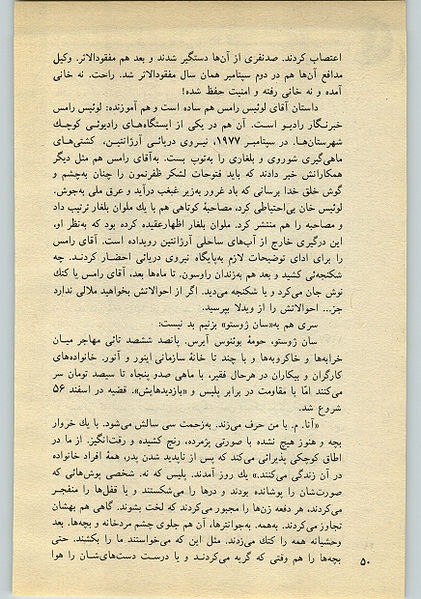 اعتصاب کردند. صدنفری از آن‌ها دستگیر شدند و بعد هم مفقودالاثر. وکیل
مدافع آن‌ها هم در دوم سپتامبر همان سال مفقودالاثر شد. راحت. نه خانی
آمده و نه خانی رفته و امنیت حفظ شده!
داستان آقای لوئیس رامس هم ساده است و هم آموزنده: لوئیس رامس
خبرنگار رادیو است. آن هم در یکی از ایستگاه‌های رادیوئی کوچك
شهرستان‌ها. در سپتامبر ۱۹۷۷، نیروی دریائی آرژانتین، کشتی‌های
ماهی‌گیری شوروی و بلغاری را به‌توپ بست. به‌آقای رامس هم مثل دیگر
همکارانش خبر دادند که باید فتوحات لشکر ظفرنمون را چنان به‌چشم و
گوش خلق خدا برسانی که باد غرور به‌زیر غبغب درآید و عرق ملی به‌جوش.
لوئیس خان بی‌احتیاطی کرد، مصاحبهٔ کوتاهی هم با یك ملوان بلغار ترتیب داد
و مصاحبه را هم منتشر کرد. ملوان بلغار اظهارعقیده کرده بود که به‌نظر او،
این درگیری خارج از آب‌های ساحلی آرژانتین رویداده است. آقای رامس
را برای ادای توضیحات لازم به‌پایگاه نیروی دریائی احضار کردند. چه
شکنجه‌ئی کشید و بعد هم به‌زندان راوسون. تا ماه‌ها بعد، آقای رامس یا کتك
نوش جان می‌کرد و یا شکنجه می‌دید. اگر از احوالاتش بخواهید ملالی ندارد
جز... احوالاتش را از ویدلا بپرسید.
سری هم به«سان ژوستو» بزنیم بد نیست:
سان ژوستو، حومهٔ بوئنوس آیرس. پانصد ششصد تائی مهاجر میان
خرابه‌ها و خاکروبه‌ها و با چند تا خانهٔ سازمانی اینور و آنور. خانواده‌های
کارگران و بیکاران در هرحال فقیر، با ماهی صدو پنجاه تا سیصد تومان سر
می‌کنند امّا با مقاومت در برابر پلیس و «بازدیدهایش». قضیه در اسفند ۵۶
شروع شد.
«آنا. م. با من حرف می‌زند. به‌زحمت سی سالش می‌شود. با یك خروار
بچه و هنوز هیچ نشده با صورتی پژمرده، رنج کشیده و رقت‌انگیز. از ما در
اطاق کوچکی پذیرائی می‌کند که پس از ناپدید شدن پدر، همهٔ افراد خانواده
در آن زندگی می‌کنند.» یك روز آمدند. پلیس که نه. شخصی پوش‌هائی که
صورت‌شان را پوشانده بودند و درها را می‌شکستند و یا قفل‌ها را منفجر
می‌کردند، هر دفعه زن‌ها را مجبور می‌کردند که لخت بشوند. گاهی هم بهشان
تجاوز می‌کردند. به‌همه. به‌جوانترها، آن هم جلوی چشم مردخانه و بچه‌ها. بعد
وحشیانه همه را کتك می‌زدند. مثل این که می‌خواستند ما را بکشند. حتی
بچه‌ها را هم وقتی که گریه می‌کردند و یا درست دست‌های‌شان را هوا
۵۰